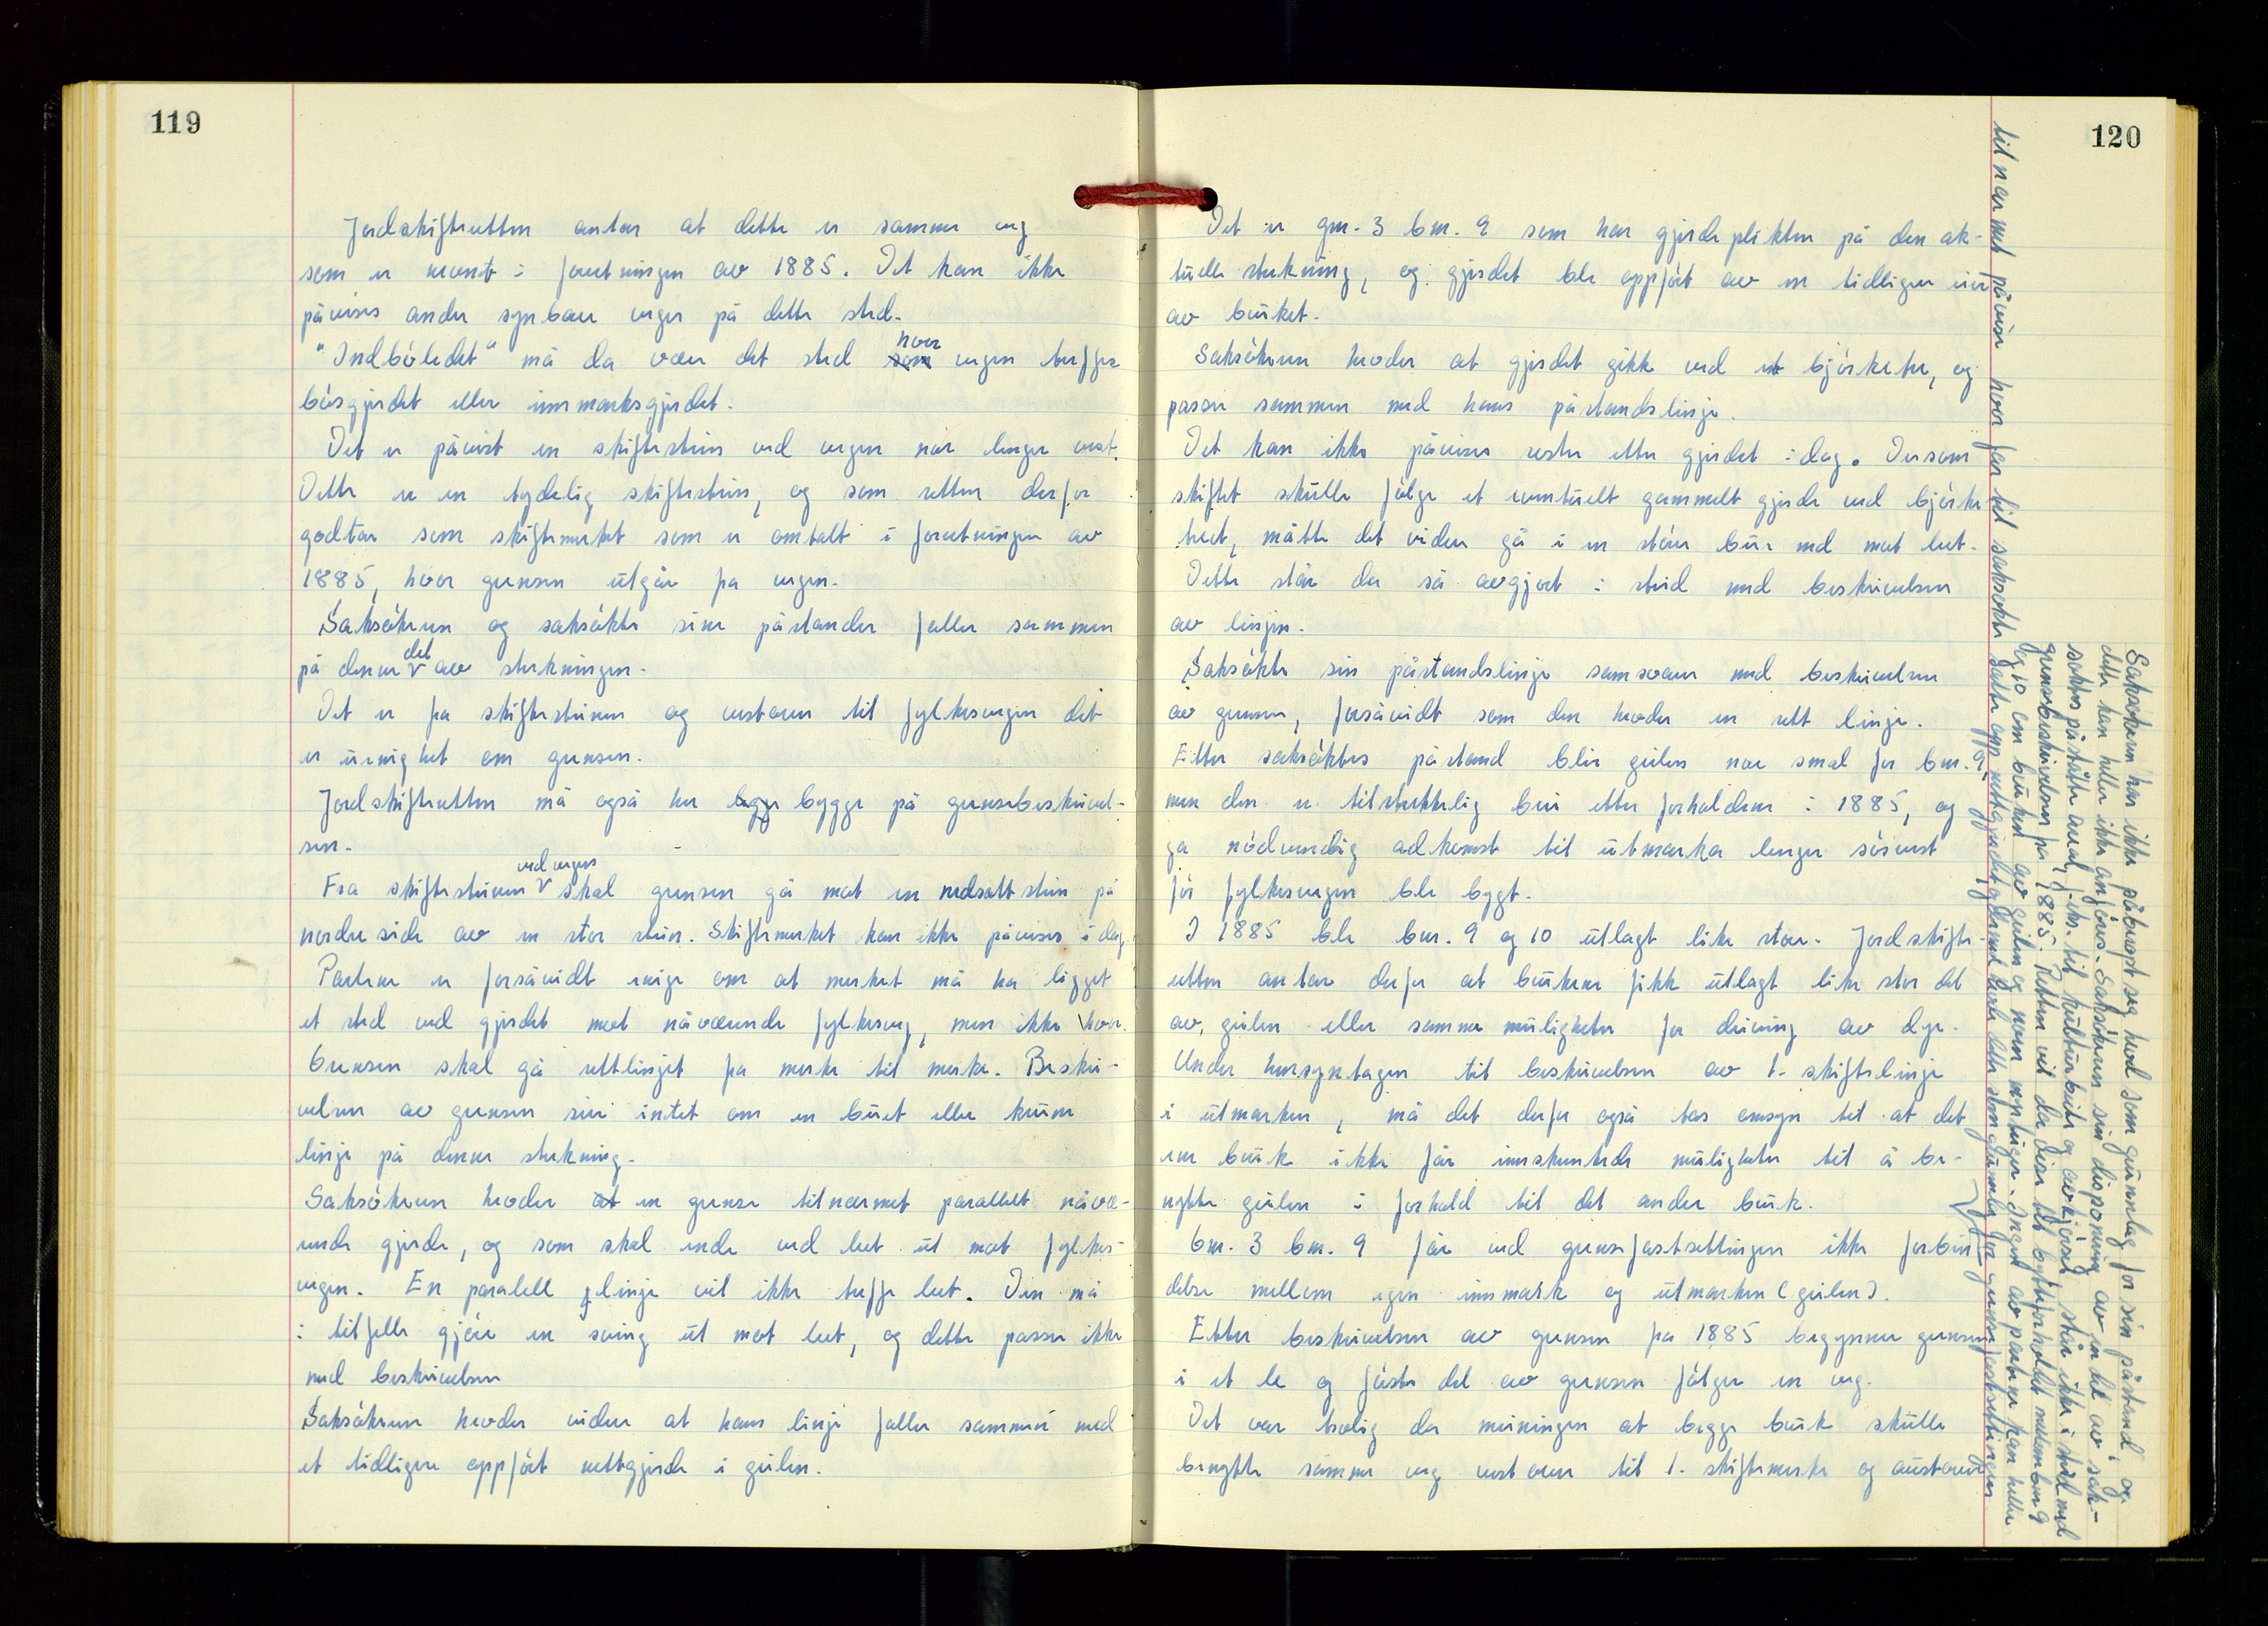 119
Jordskifteretten antar at dette er samme veg
som er nevnt i forretningen av 1885. Det kan ikke
påvises andre synbare veger på dette sted.
"Indbøledet" må da være det sted hvor vegen treffer
bøsgjerdet eller innmarksgjerdet.
Det er påvist en skiftestein ved vegen noe lenger vest.
Dette er en tydelig skiftestein, og som retten derfor
godtar som skiftemerket som er omtalt i forretningen av
1885, hvor grensen utgår fra vegen.
Saksøkeren og saksøkte sine påstander faller sammen
på denne del av strekningen.
Det er fra skiftesteinen og vestover til fylkesvegen det
er uenighet om grensen.
Jordskifteretten må også her bygge på grensebeskrivel-
sen.
Fra skiftesteinen ved vegen skal grensen gå mot en nedsatt stein på
nordre side av en stor stein. Skiftemerket kan ikke påvises i dag.
Partene er forsåvidt enige om at merket må ha ligget
et sted ved gjerdet mot nåværende fylkesveg, men ikke hvor.
Grensen skal gå rettlinjet fra merke til merke. Beskri-
velsen av grensen sier intet om en buet eller krum
linje på denne strekning.
Saksøkeren hevder at en grense tilnærmet parallelt nåvæ-
rende gjerde, og som skal ende ved leet ut mot fylkes-
vegen. En paralell linje vil ikke treffe leet. Den må
i tilfelle gjøre en sving ut mot leet, og dette passer ikke
med beskrivelsen
Saksøkeren hevder videre at hans linje faller sammen med
et tidligere oppført nettgjerde i geilen.
120
Det er gnr. 3 bnr. 9 som har gjerdeplikten på den ak-
tuelle strekning, og gjerdet ble oppført av en tidligere eier
av bruket.
Saksøkeren hevder at gjerdet gikk ved et bjørketre, og
passer sammen med hans påstandslinje.
Det kan ikke påvises rester etter gjerdet i dag. Dersom
skiftet skulle følge et eventuelt gammelt gjerde ved bjørke
treet, måtte det videre gå i en større bue ned mot leet.
Dette står da så avgjort i strid med beskrivelsen
av linjen.
Saksøkte sin påstandslinje samsvarer med beskrivelsen
av grensen, forsåvidt som den hevder en rett linje.
Etter saksøktes påstand blir geilen noe smal for bnr. 9,
men den er tilstrekkelig brei etter forholdene i 1885, og
ga nødvendig adkomst til utmarka lenger sørvest
før fylkesvegen ble bygt.
I 1885 ble bnr. 9 og 10 utlagt like store. Jordskifte-
retten antar derfor at brukene fikk utlagt like stor del
av geilen eller samme muligheter for driving av dyr.
Under hensyntagen til beskrivelsen av 1. skiftelinje
i utmarken, må det derfor også tas omsyn til at det
ene bruk ikke får innskrenkede muligheter til å be-
nytte geilen i forhold til det andre bruk.
Gnr. 3 bnr. 9 får ved grensefastsettingen ikke forbin-
delse mellom egen innmark og utmarken (geilen).
Etter beskrivelsen av grensen fra 1885 begynner grensen
i et le og første del av grensen følger en veg.
Det var trolig da meiningen at begge bruk skulle
benytte samme veg vestover til 1. skiftemerke og austover
til nærmest påviser hvor før til saksøkte satte opp nettgjerdet og dermed
Saksøkeren har ikke påberopt seg hevd som grunnlag for sin påstand, og
dette kan heller ikke anføres. Saksøkeren sin disponering av en del av sak-
søktes påståtte areal, f.eks. til kulturbeite og avkjørsel, står ikke i strid med
grensebeskrivelsen fra 1885. Retten vil da vise til bytteforholdet mellom bnr. 9
og 10 om bruken av geilen og noen utveger. Ingen av partene kan heller